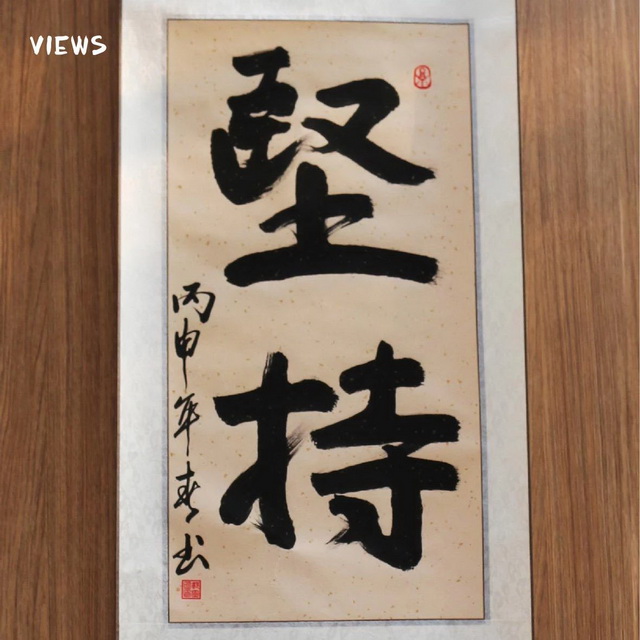 VIEWS
堅持
丙申年春书